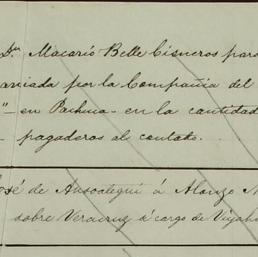 Dn Macario Belle Cisneros para
enviada por la Compañia del
"- en Pachuca - en la cantidad
- pagaderos al contato.
José de Ansoategui á Alonzo
sobre Veracruz á cargo de